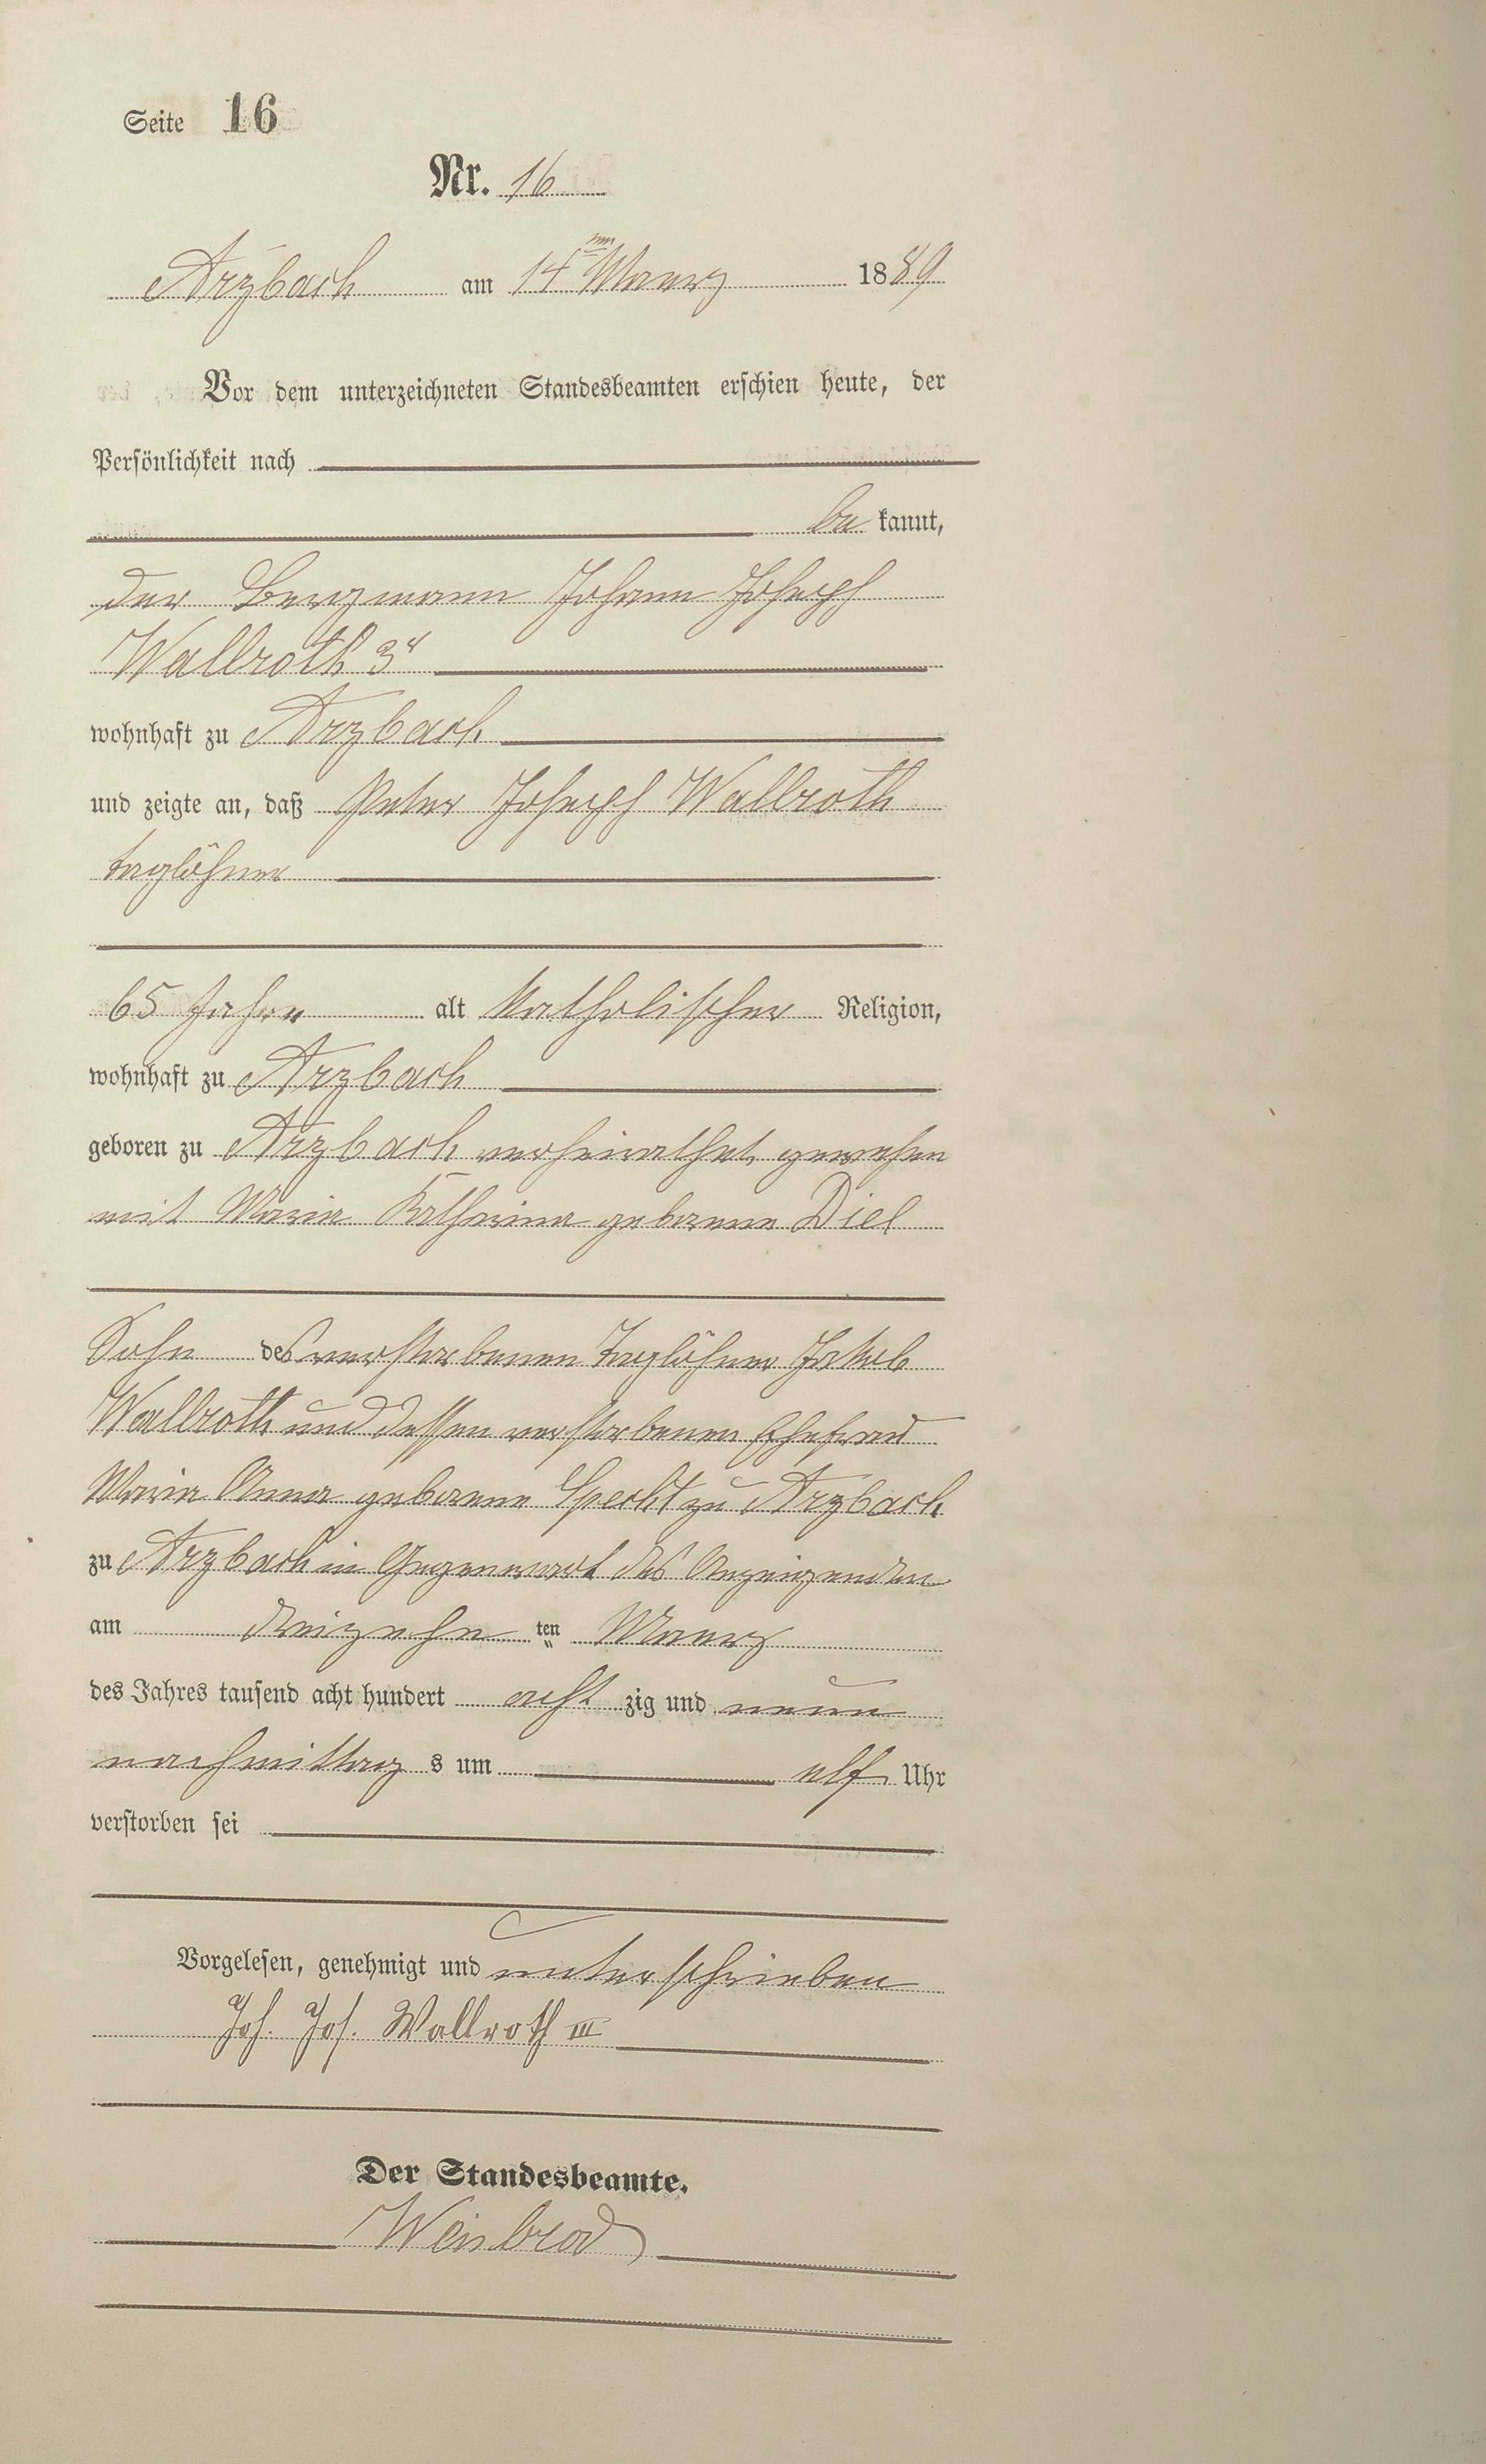 Seite 16
Nr. 16
Arzbach am 14ten Maerz 1889
Vor dem unterzeichneten Standesbeamten erschien heute, der
Persönlichkeit nach
be kannt,
der Bergmann Johann Joseph
Wallroth 3r
wohnhaft zu Arzbach
und zeigte an, daß Peter Joseph Wallroth
Taglöhner
65 Jahre alt katholischer Religion,
wohnhaft zu Arzbach
geboren zu Arzbach verheirathet gewesen
mit Maria Katharina geborene Diel
Sohn des verstorbenen Taglöhner Jakob
Wallroth und dessen verstorbenen Ehefrau
Maria Anna geborene Specht zu Arzbach
zu Arzbach in Gegenwart des Anzeigenden
am dreizehn ten Maerz
des Jahres tausend acht hundert acht zig und neun
nachmittag s um elf Uhr
verstorben sei
Vorgelesen, genehmigt und unterschrieben
Joh. Jos. Wallroth III
Der Standesbeamte.
Weisbrod